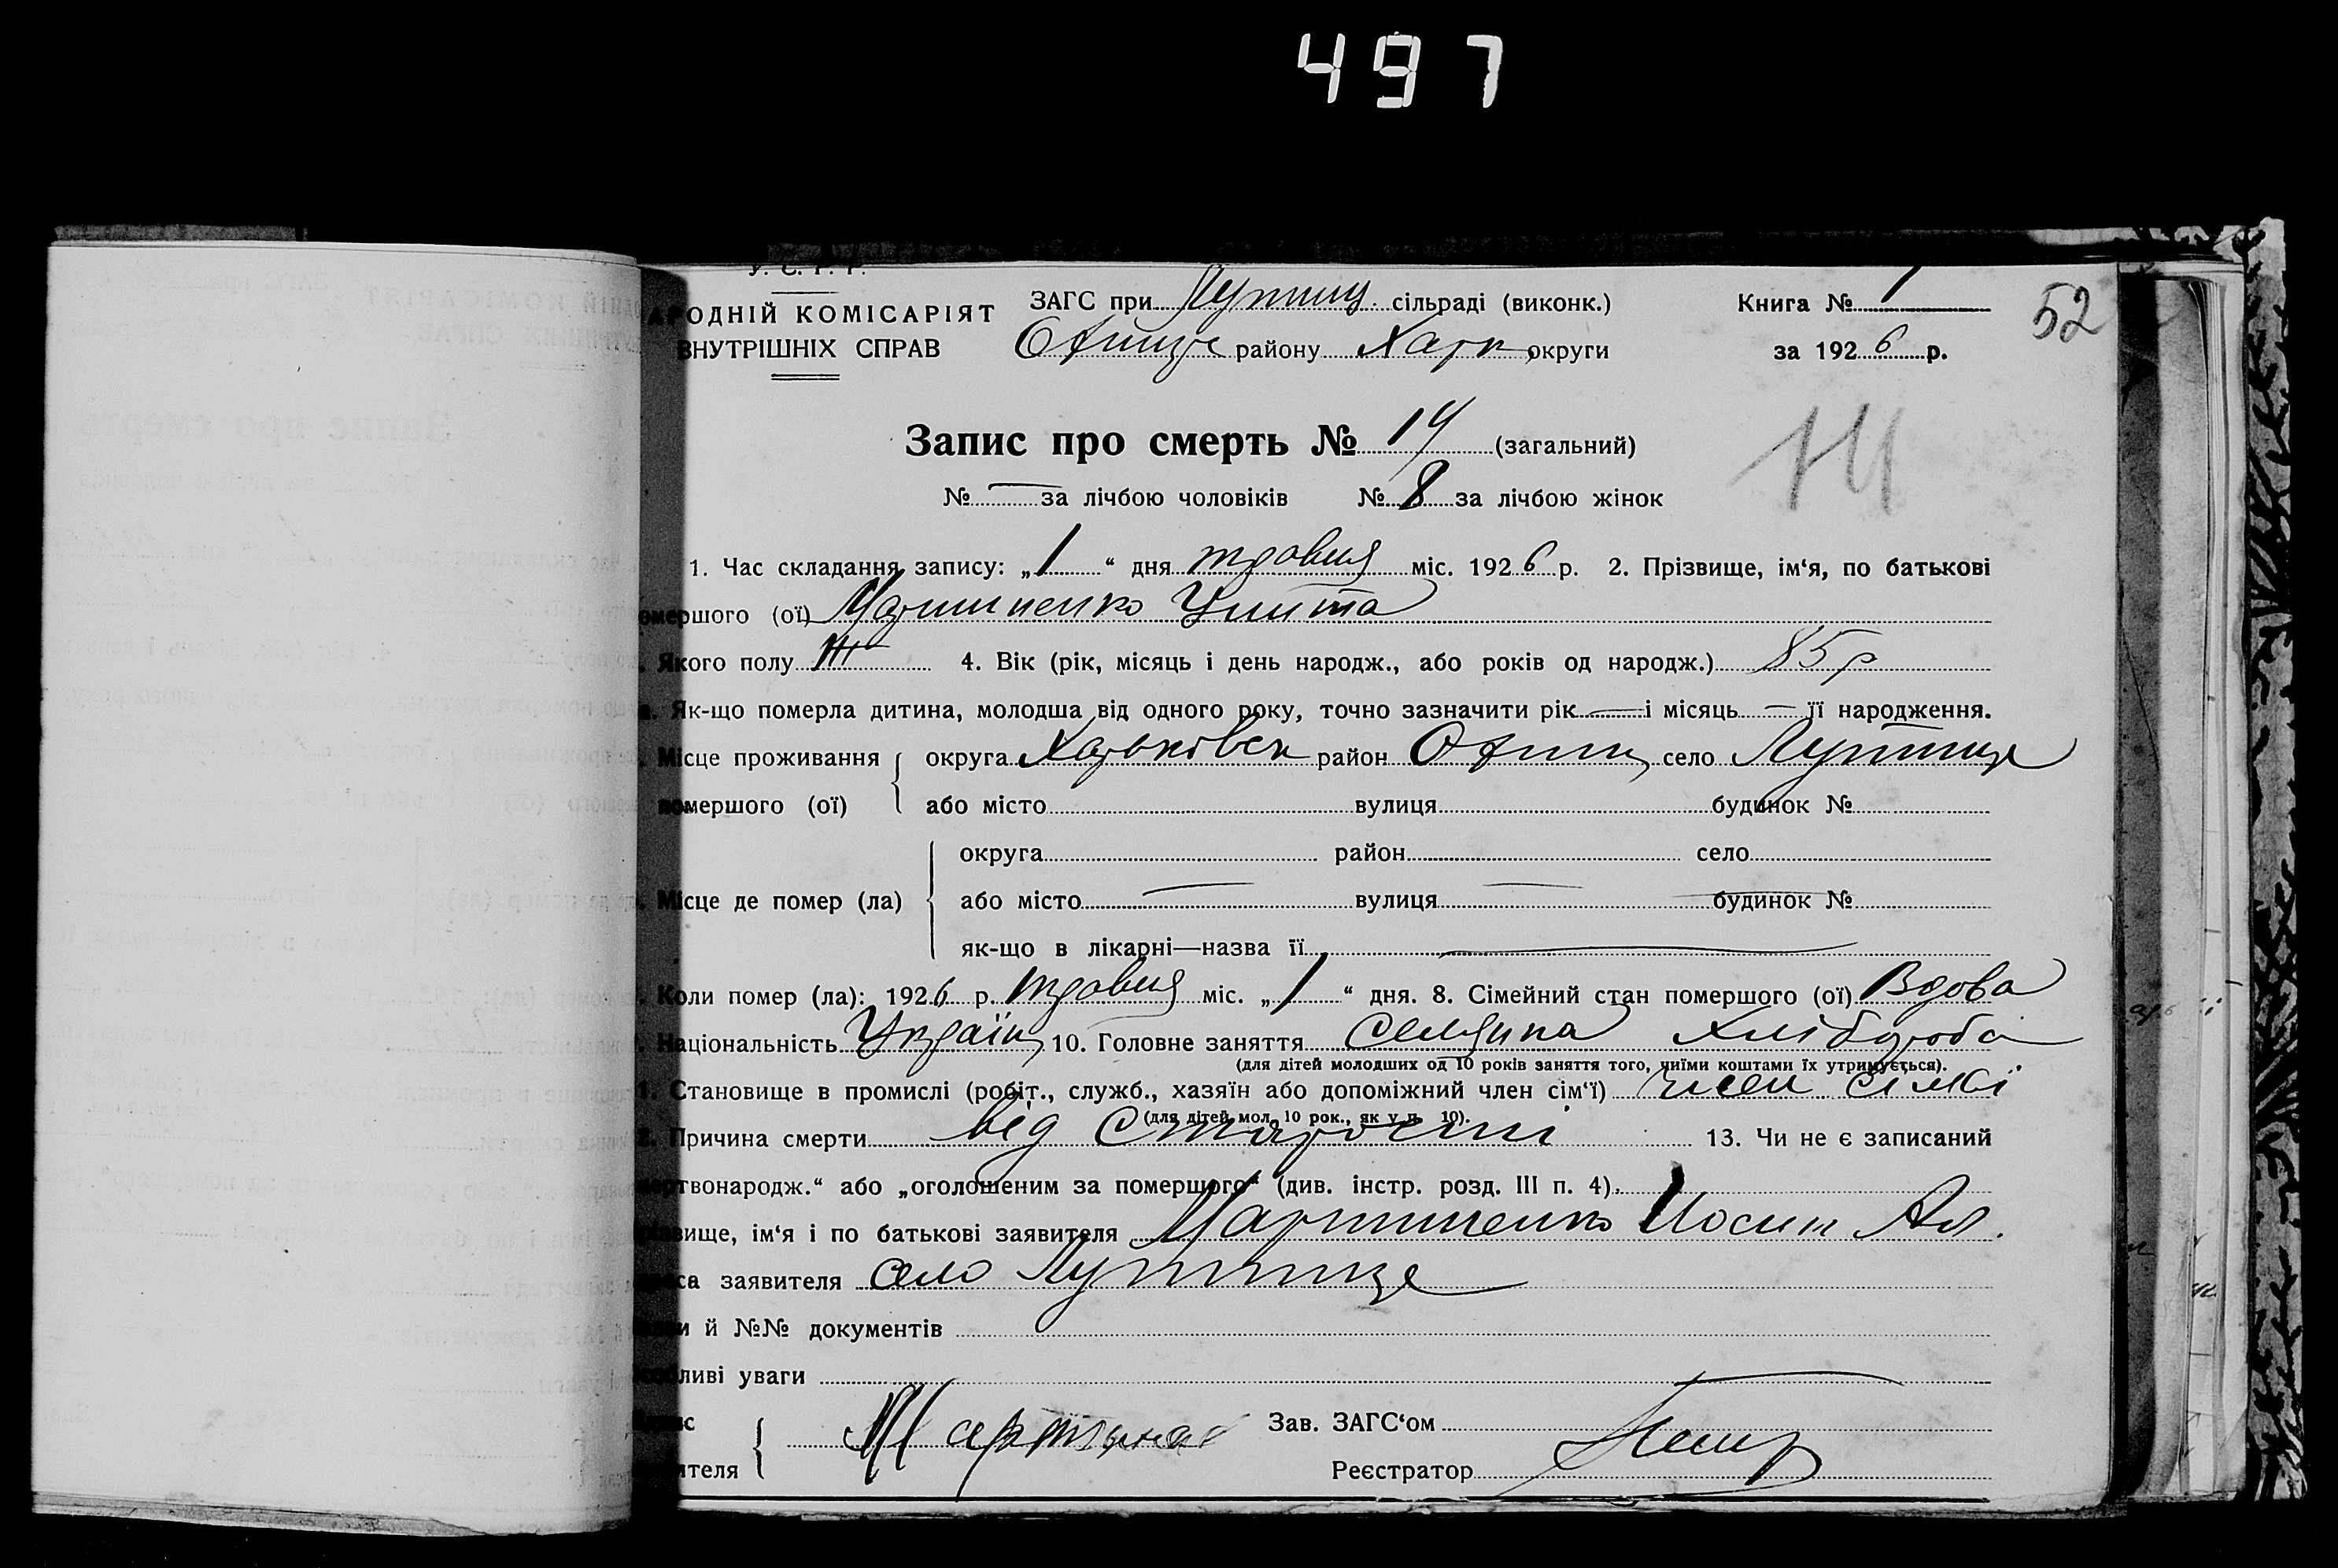 497
У. С. Р. Р.
АРОДНІЙ КОМІСАРІЯТ
ВНУТРІШНІХ СПРАВ
ЗАГС при Лутищ. сільраді (виконк.)
району Харк. округи
Книга № 1
за 1926 р.
52
Запис про смерть № 14 (загальний)
14
№ — за лічбою чоловіків № 8 за лічбою жінок
1. Час складання запису: „1“ дня травня міс. 1926 р. 2. Прізвище, ім‘я, по батькові
омершого (ої) Мартиненко Улита
. Якого полу Ж 4. Вік (рік, місяць і день народж., або років од народж.) 85 р
а. Як-що померла дитина, молодша від одного року, точно зазначити рік — і місяць — її народження.
Місце проживання помершого (ої)
округа Харьківськ район Охтищ село Лутище
або місто вулиця будинок №
Місце де помер (ла)
округа район село
або місто — вулиця — будинок № —
як-що в лікарні—назва її —
. Коли помер (ла): 1926 р. травня міс. „1“ дня. 8. Сімейний стан помершого (ої) Вдова
. Національність Україн. 10. Головне заняття Селянка Хлібороб
(для дітей молодших од 10 років заняття того, чиїми коштами їх утримується).
1. Становище в промислі (робіт., служб., хазяїн або допоміжний член сім‘ї) член сімї
(для дітей мол. 10 рок., як у п. 10).
2. Причина смерти від старости 13. Чи не є записаний
ертвонародж.“ або „оголошеним за помершого“ (див. інстр. розд. III п. 4).
звище, ім‘я і по батькові заявителя Мартиненко Йосип
са заявителя село Лутище
и й №№ документів
ливі уваги —
с
ителя
Зав. ЗАГС‘ом
Реєстратор